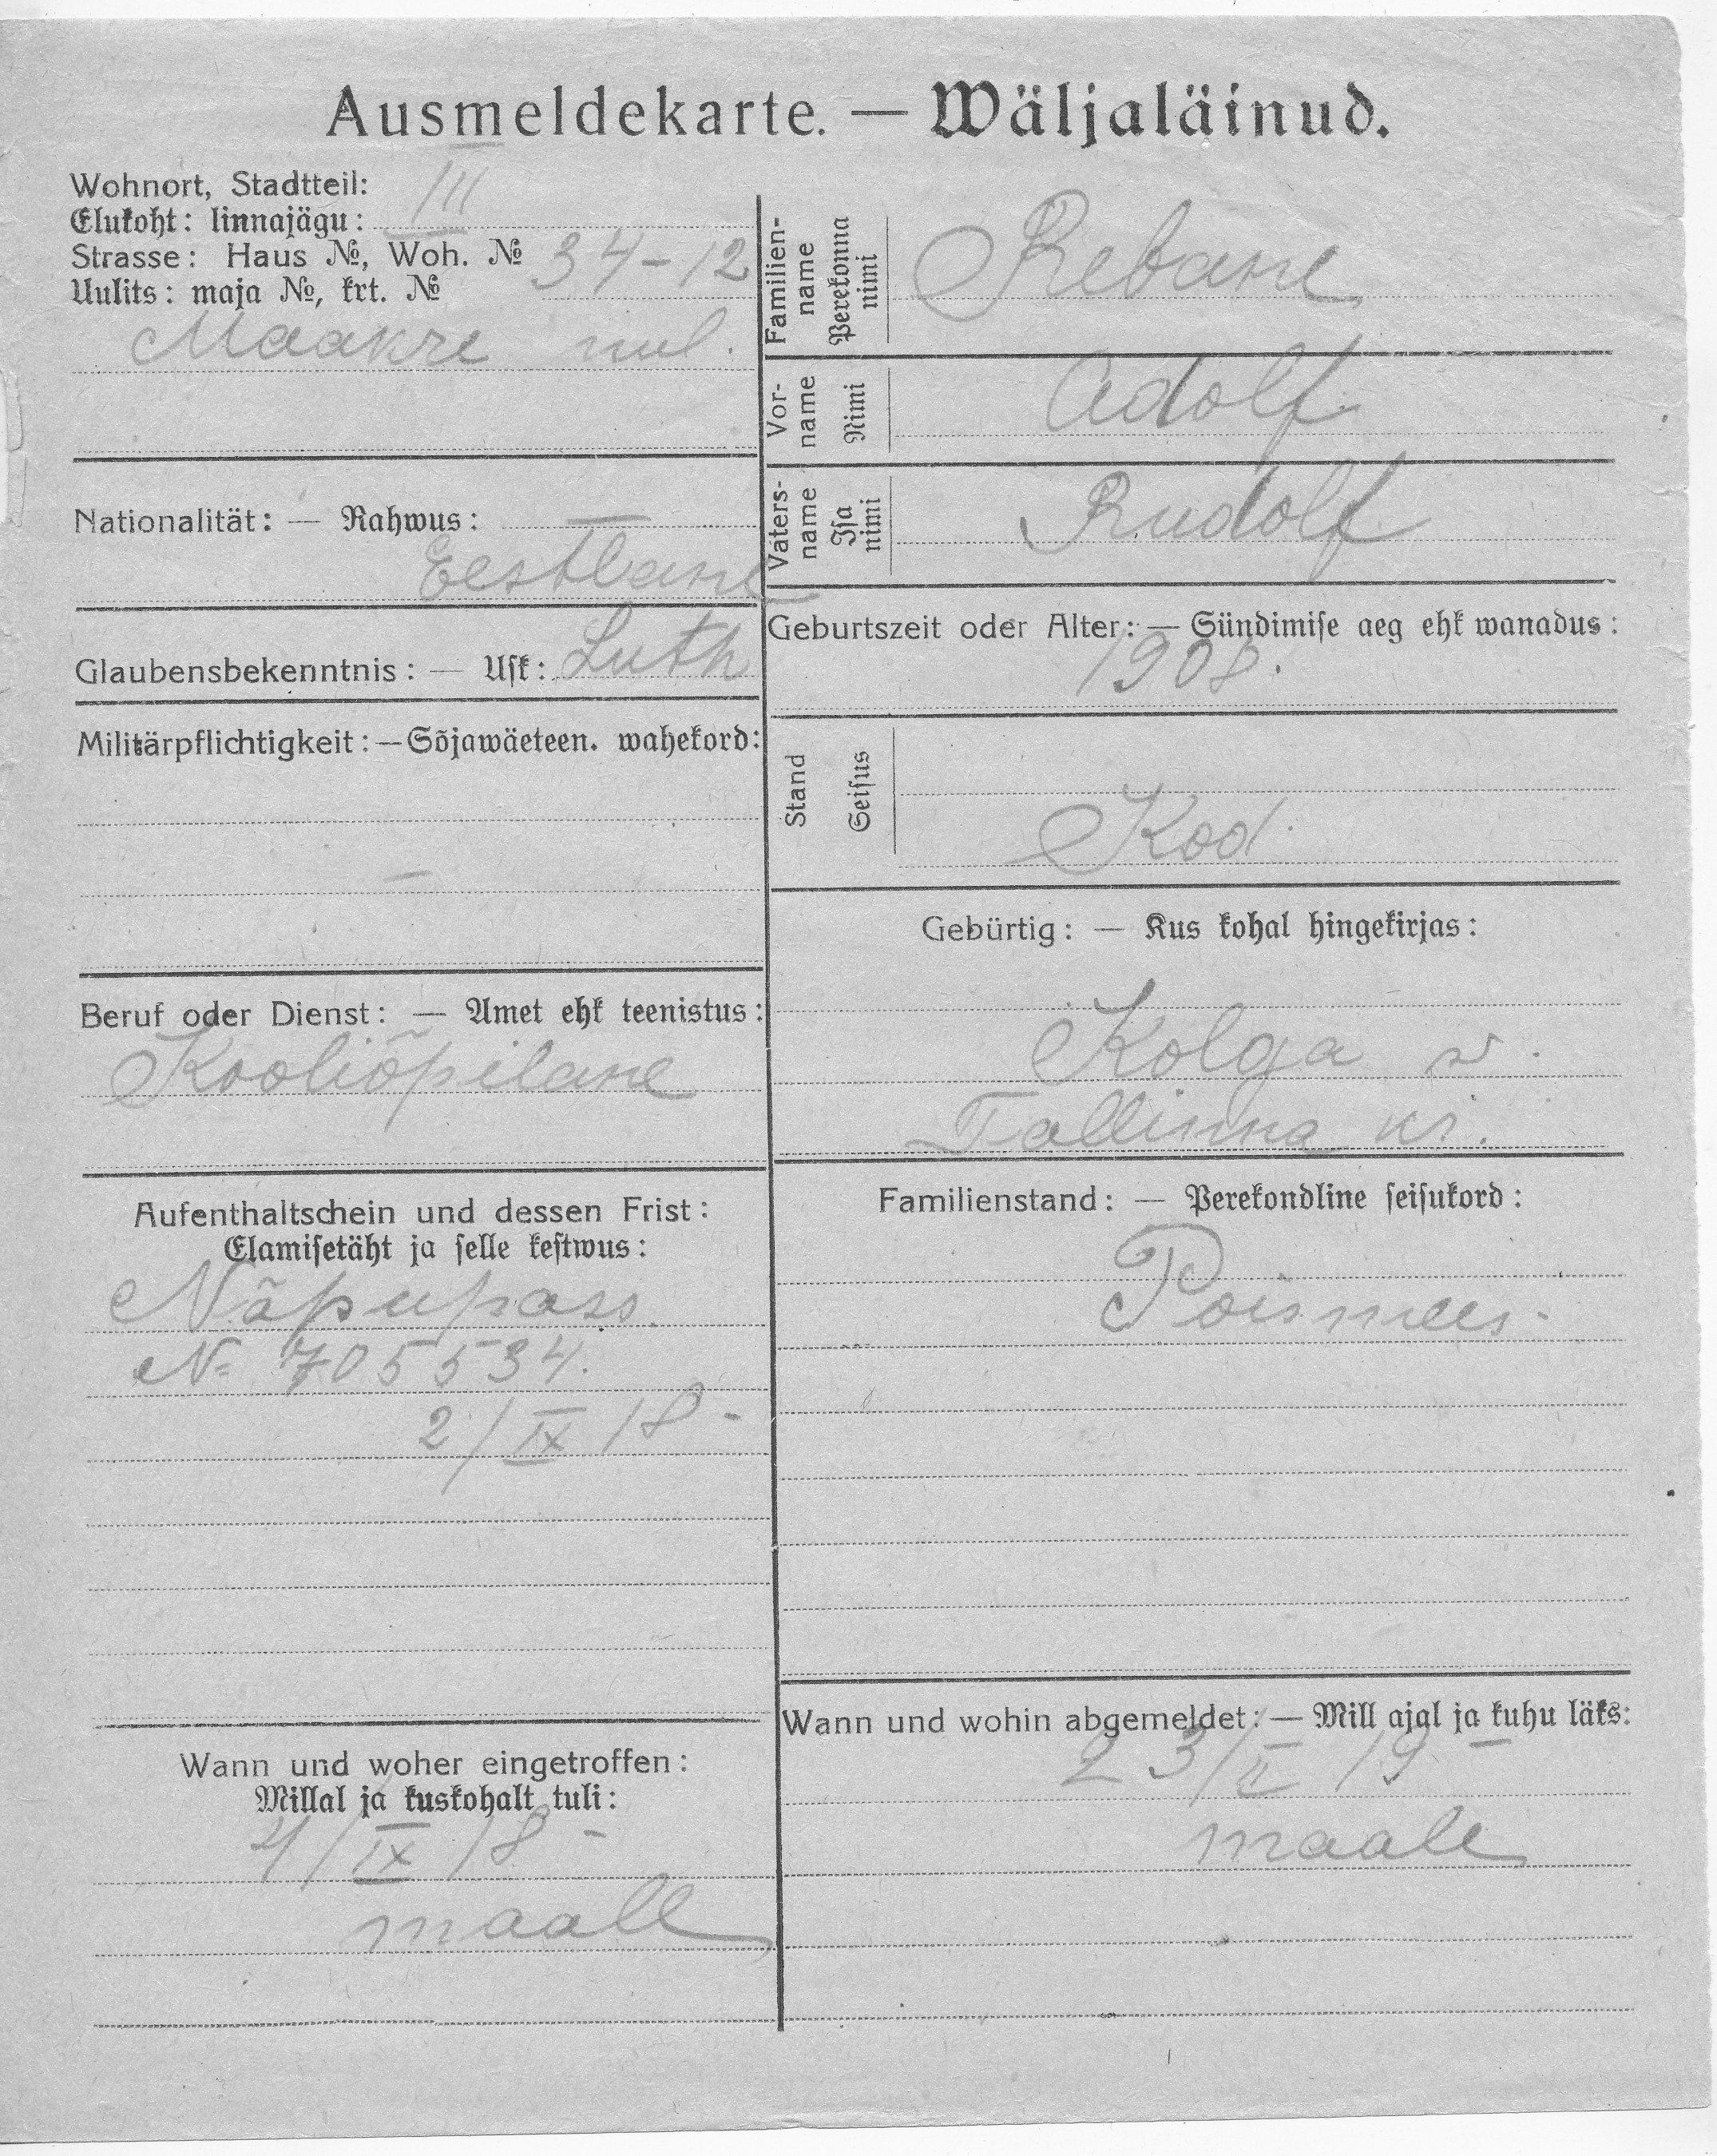 Ausmeldekarte. — Wäljaläinud.
Wohnort, Stadtteil: III
Elukoht: linnajägu:
Strasse: Haus №, Woh. № 34-12
Uulits: maja №, krt. №
Maakre uul.
Familien-name Perekonna nimi Rebane
Vor-name Nimi Adolf
Vaters-name Isa nimi Rudolf
Nationalität: — Rahwus: —
Eestlane
Geburtszeit oder Alter: — Sündimise aeg ehk wanadus:
1908.
Glaubensbekenntnis: — Usk: Luth
Militärpflichtigkeit: — Sõjawäeteen. wahekord:
—
Stand Seisus Kod.
Gebürtig: — Kus kohal hingekirjas:
Kolga w.
Tallinna kr.
Beruf oder Dienst: — Amet ehk teenistus:
Kooliõpilane
Aufenthaltschein und dessen Frist:
Elamisetäht ja selle kestwus:
Näpupass.
№ 705534.
2/IX 18-
Familienstand: — Perekondline seisukord:
Poismees-
Wann und woher eingetroffen:
Millal ja kuskohalt tuli:
4/IX 18-
maall
Wann und wohin abgemeldet: — Mill ajal ja kuhu läks:
23/II 19-
maale